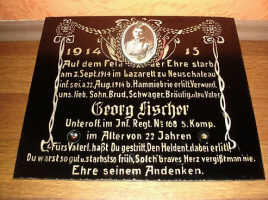 1914 15
Auf dem Felde der Ehre starb
am 2. Sept. 1914 im Lazarett zu Neuschateau
inf. sei. a. 22. Aug. 1914 b. erlitt. Verwund.
uns. lieb. Sohn, Brud., Schwager, Bräutig. u. treu. Vater
Georg Fischer
Unteroff. im Inf. Regt. No 168 5. Komp.
im Alter von 22 Jahren
Fürs Vaterl. haßt Du gestritt., Den Heldent. dabei erlitt.
Du warst so gut u. starbst so früh, Solch' braves Herz vergißt man nie.
Ehre seinem Andenken.